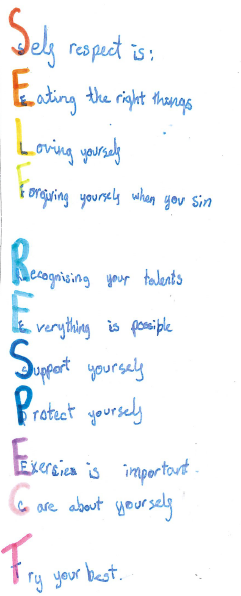 Self respect is:
Eating the right things
Loving yourself
Forgiving yourself when you sin
Recognising your talents
Everything is possible
Support yourself
Protect yourself
Exersies is important.
Care about yourself
Try your best.